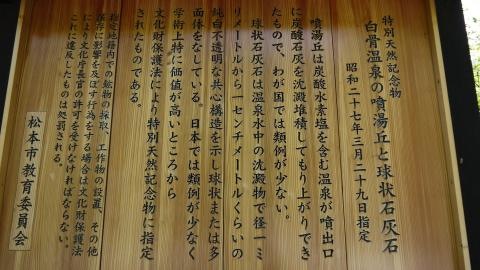 特別天然記念物
白骨温泉の噴湯丘と球状石灰石
昭和二十七年三月二十九日指定
噴湯丘は炭酸水素塩を含む温泉が噴出口
に炭酸石灰を沈澱堆積してもり上がりでき
たもので、わが国では類例が少ない。
球状石灰石は温泉水中の沈澱物で径一ミ
リメートルから一センチメートルくらいの
純白不透明な共心構造を示し球状または多
面体をなしている。日本では類例が少なく
学術上特に価値が高いところから
文化財保護法により特別天然記念物に指定
されたものである。
指定地籍内での鉱物の採取、工作物の設置、その他
保存に影響を及ぼす行為をする場合は文化財保護法
により文化庁長官の許可を受けなければならない。
これに違反したものは処罰される。
松本市教育委員会